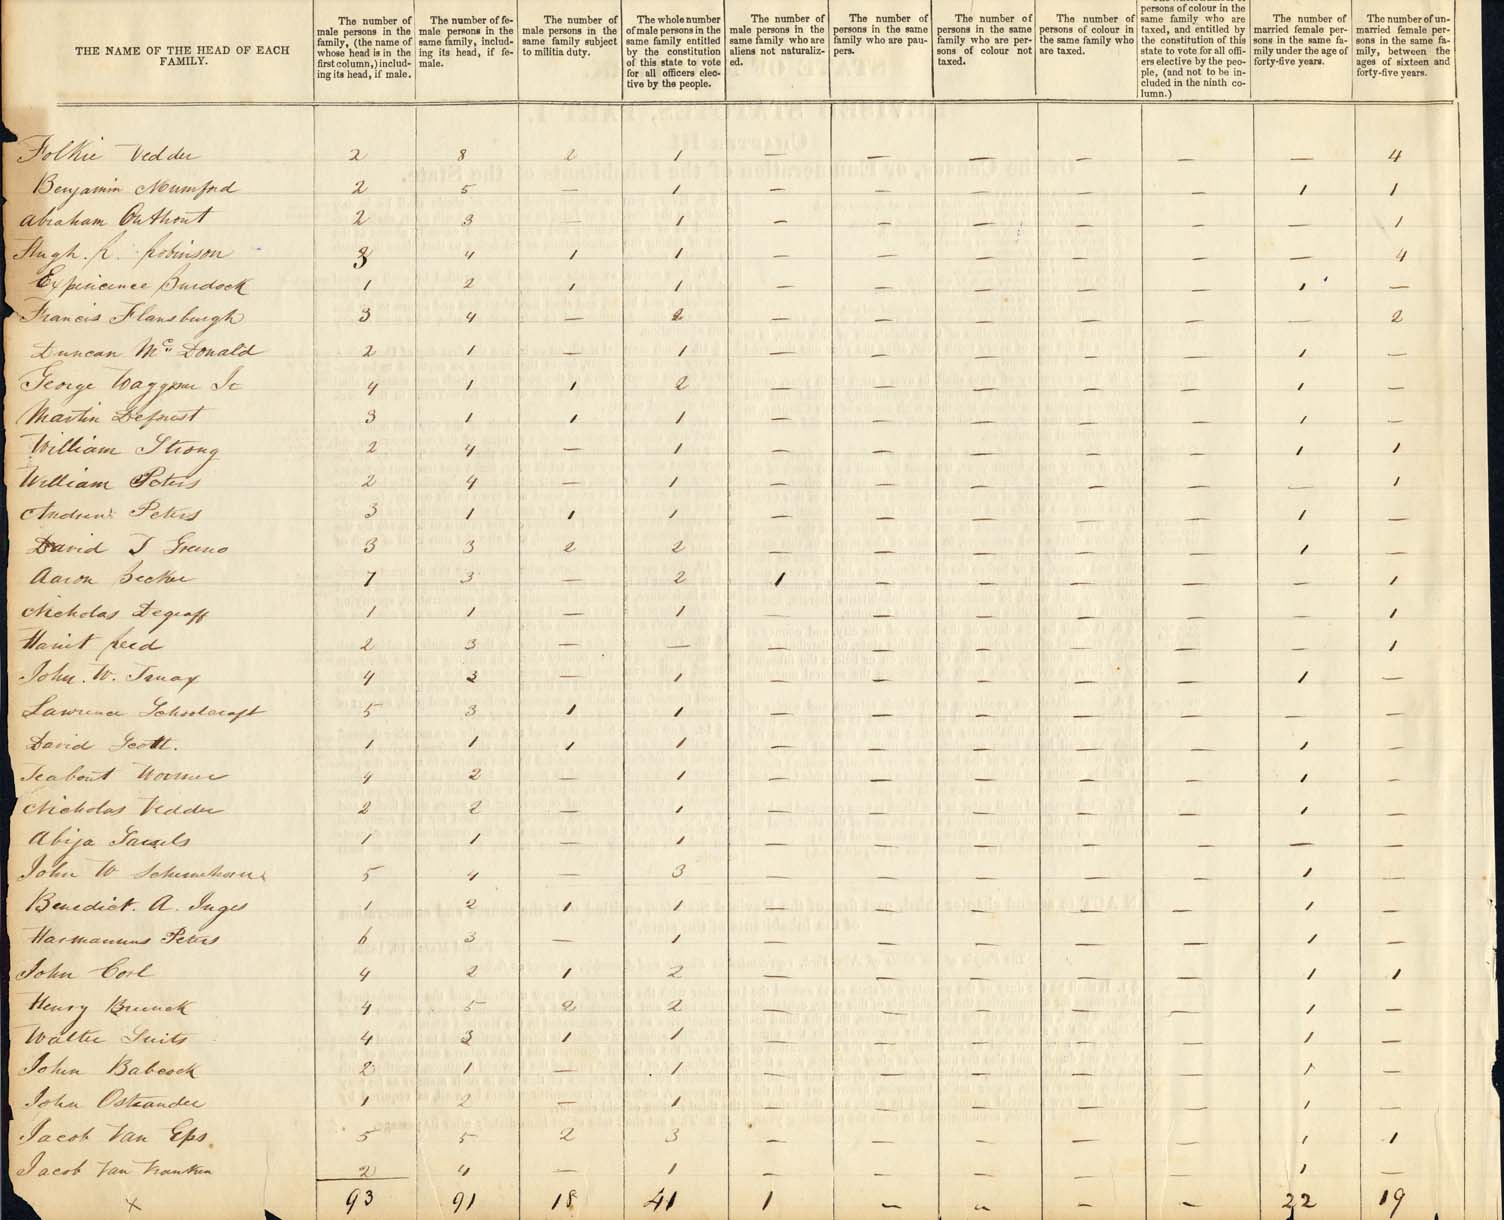 THE NAME OF THE HEAD OF EACH FAMILY.
The number of male persons in the family, (the name of whose head is in the first column,) including its head, if male.
The number of female persons in the same family, including its head, if female.
The number of male persons in the same family subject to militia duty.
The whole number of male persons in the same family entitled by the constitution of this state to vote for all officers elective by the people.
The number of male persons in the same family who are aliens not naturalized.
The number of persons in the same family who are paupers.
The number of persons in the same family who are persons of colour not taxed.
The number of persons of colour in the same family who are taxed.
persons of colour in the same family who are taxed, and entitled by the constitution of this state to vote for all officers elective by the people, (and not to be included in the ninth column.)
The number of married female persons in the same family under the age of forty-five years.
The number of unmarried female persons in the same family, between the ages of sixteen and forty-five years.
Folkie Vedder 2 8 2 1 — — — — — — 4
Benjamin Mumford 2 5 — 1 — — — — — 1 1
Abraham Outhout 2 3 — 1 — — — — — — 1
Hugh. R. Robinson 3 4 1 1 — — — — — — 4
Experience Burdock 1 2 1 1 — — — — — 1 —
Francis Flansburgh 3 4 — 2 — — — — — — 2
Duncan Mc Donald 2 1 — 1 — — — — — 1 —
George Waggoner Jr 4 1 1 2 — — — — — 1 —
Martin Deforest 3 1 1 1 — — — — — 1 —
William Strong 2 4 — 1 — — — — — 1 1
William Peters 2 4 — 1 — — — — — — 1
Andrew Peters 3 1 1 1 — — — — — 1 —
David T Greno 3 3 2 2 — — — — — 1 —
Aaron Becker 7 3 — 2 1 — — — — — 1
Nicholas Degraff 1 1 — 1 — — — — — — 1
Reed 2 3 — — — — — — — — 1
John. W. Truax 4 3 — 1 — — — — — 1 —
Lawrence Schoolcraft 5 3 1 1 — — — — — — —
David Scott. 1 1 1 1 — — — — — 1 —
4 2 — 1 — — — — — 1 —
Nicholas Vedder 2 2 — 1 — — — — — 1 —
Abija 1 1 — 1 — — — — — — —
John W Schermehorn 5 4 — 3 — — — — — 1 —
Benedict. A. Inges 1 2 1 1 — — — — — 1 —
Harmannus Peters 6 3 — 1 — — — — — 1 —
John Corl 4 2 1 2 — — — — — 1 1
Henry 4 5 2 2 — — — — — 1 —
Walter Suits 4 3 1 1 — — — — — 1 —
John Babcock 2 1 — 1 — — — — — 1 —
John Ostrander 1 2 — 1 — — — — — 1 —
Jacob Van Eps 5 5 2 3 — — — — — 1 1
Jacob Van Vranken 2 4 — 1 — — — — — 1 —
x 93 91 18 41 1 — — — — 22 19